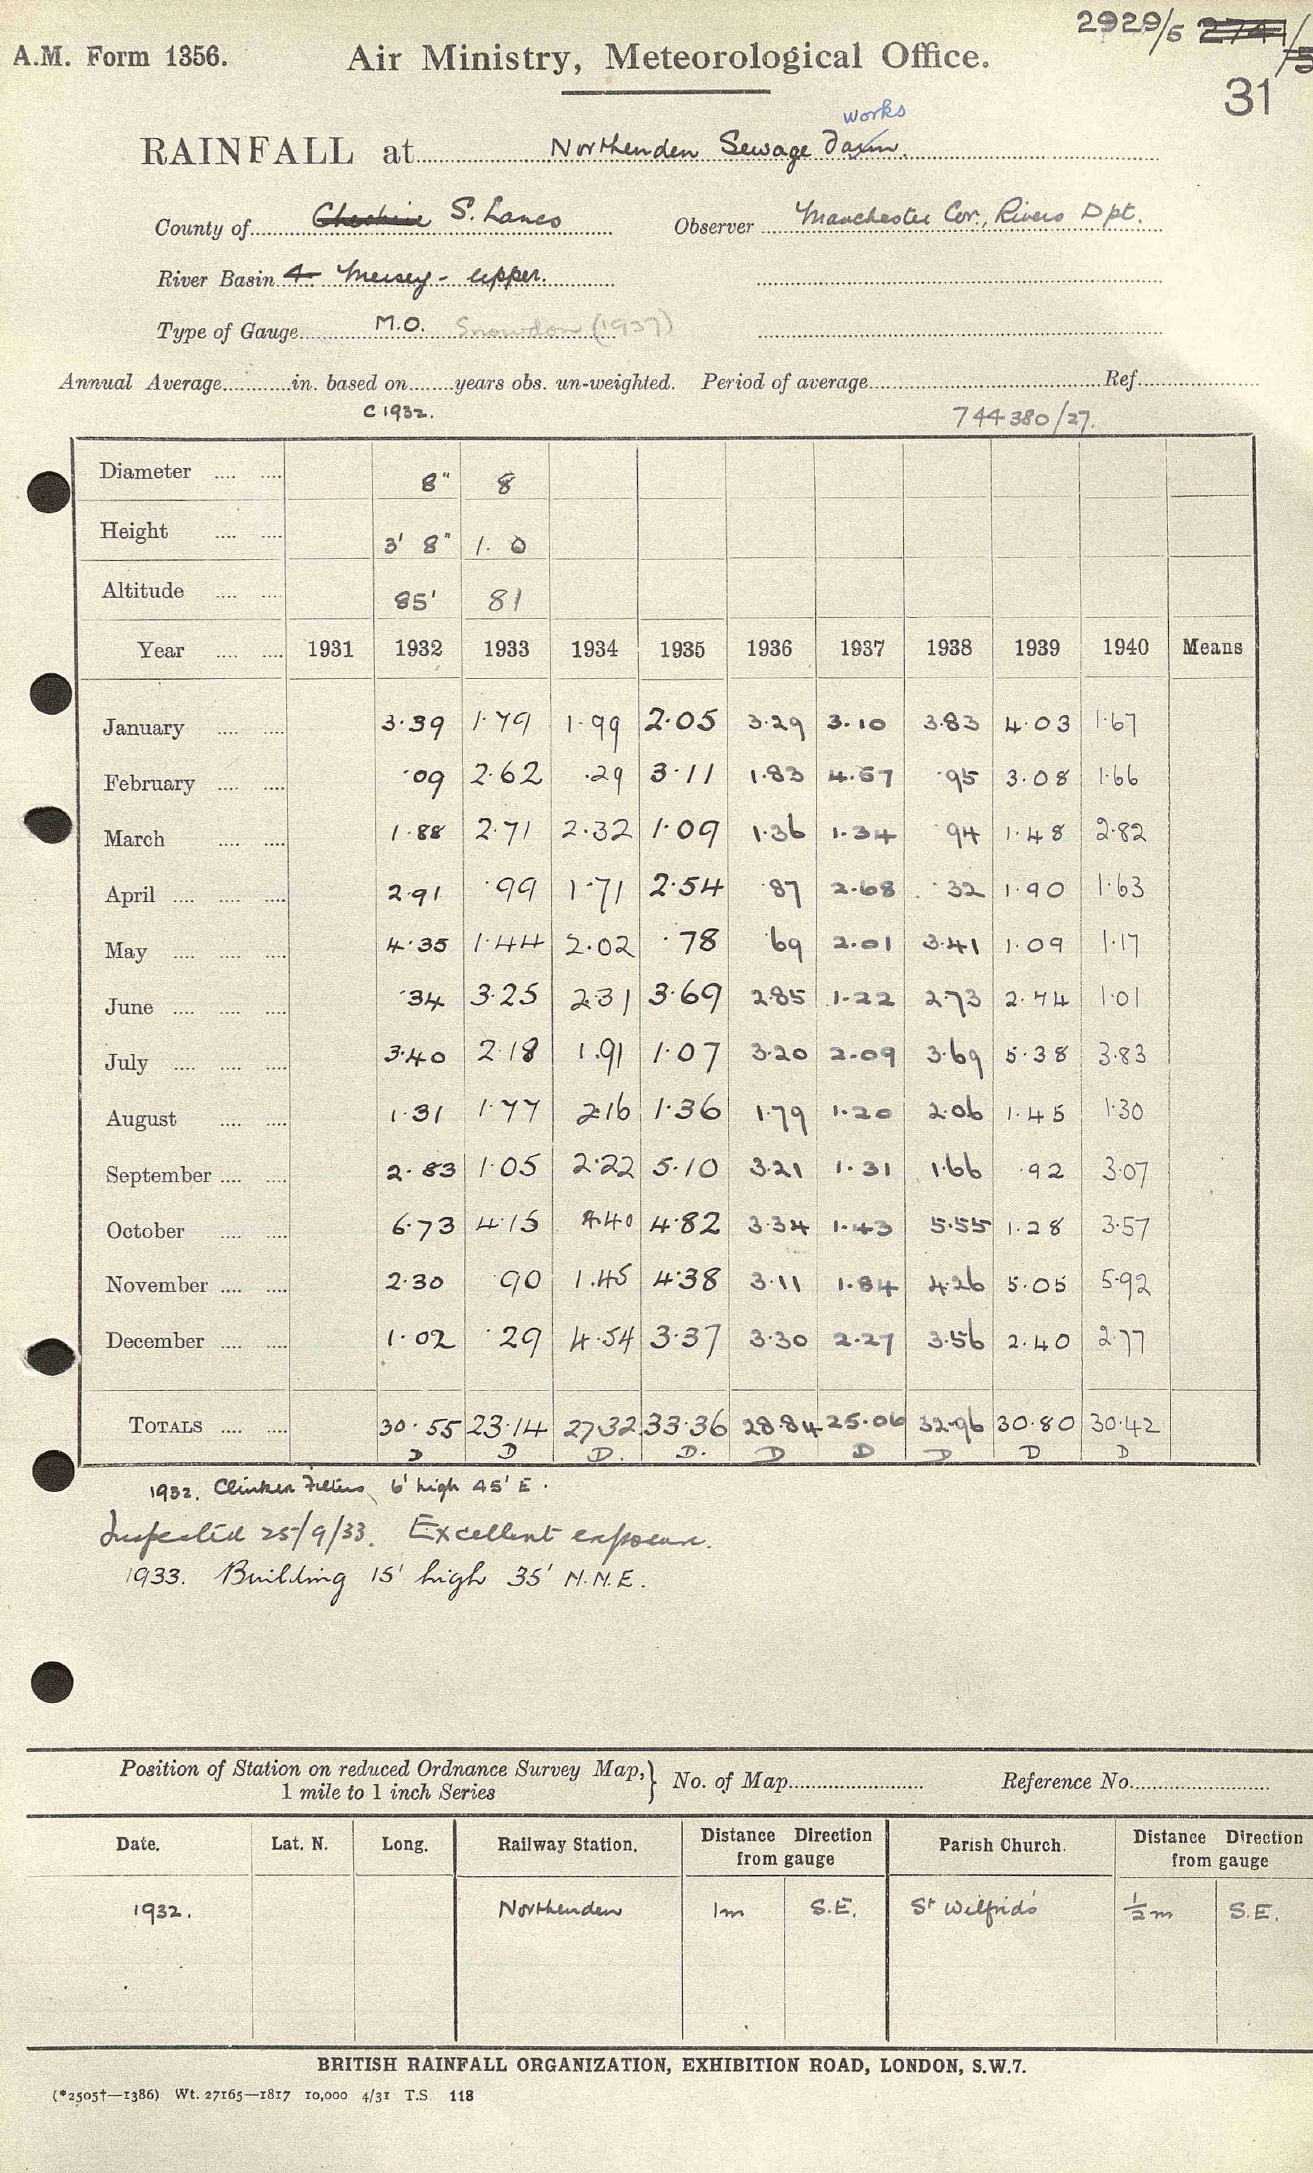 2929/5 2741/5
A.M. Form 1356. Air Ministry, Meteorological Office.
31
works
RAINFALL at Northenden Sewage Farm.
County of Cheshire S. Lancs Observer Manchester Cor., Rivers Dpt.
River Basin 4 Mersey - upper.
Type of Gauge M.O. Snowdon (1937)
Annual Average............in. based on........years obs. un-weighted. Period of average.................... Ref..........
C 1932. 744380/27.
Diameter .... .... 8" 8
Height .... .... 3' 8" 1. 0
Altitude .... .... 85' 81
Year .... .... 1931 1932 1933 1934 1935 1936 1937 1938 1939 1940 Means
January .... .... 3.39 1.79 1.99 2.05 3.29 3.10 3.83 4.03 1.67
February .... .... .09 2.62 .29 3.11 1.83 4.57 .95 3.08 1.66
March .... .... 1.88 2.71 2.32 1.09 1.36 1.34 .94 1.48 2.82
April .... .... .... 2.91 .99 1.71 2.54 .87 2.68 .32 1.90 1.63
May .... .... .... 4.35 1.44 2.02 .78 .69 2.01 3.41 1.09 1.17
June .... .... .... .34 3.25 2.31 3.69 2.85 1.22 2.73 2.74 1.01
July .... .... .... 3.40 2.18 1.91 1.07 3.20 2.09 3.69 5.38 3.83
August .... .... 1.31 1.77 2.16 1.36 1.79 1.20 2.06 1.45 1.30
September .... .... 2.83 1.05 2.22 5.10 3.21 1.31 1.66 .92 3.07
October .... .... 6.73 4.15 4.40 4.82 3.34 1.43 5.55 1.28 3.57
November .... .... 2.30 .90 1.45 4.38 3.11 1.84 4.26 5.05 5.92
December .... .... 1.02 .29 4.54 3.37 3.30 2.27 3.56 2.40 2.77
TOTALS .... .... 30.55 23.14 27.32 33.36 28.84 25.06 32.96 30.80 30.42
D D D. D. D D D D D
1932. Clinker Filters, 6' high 45' E.
Inspected 25/9/33. Excellent exposure.
1933. Building 15' high 35' N.N.E.
Position of Station on reduced Ordnance Survey Map, 1 mile to 1 inch Series } No. of Map.................... Reference No....................
Date. Lat. N. Long. Railway Station. Distance Direction from gauge Parish Church. Distance Direction from gauge
1932. Northenden 1m S.E. St Wilfrid's ½m S.E.
BRITISH RAINFALL ORGANIZATION, EXHIBITION ROAD, LONDON, S.W.7.
(*2505†—1386) Wt. 27165—1817 10,000 4/31 T.S. 118